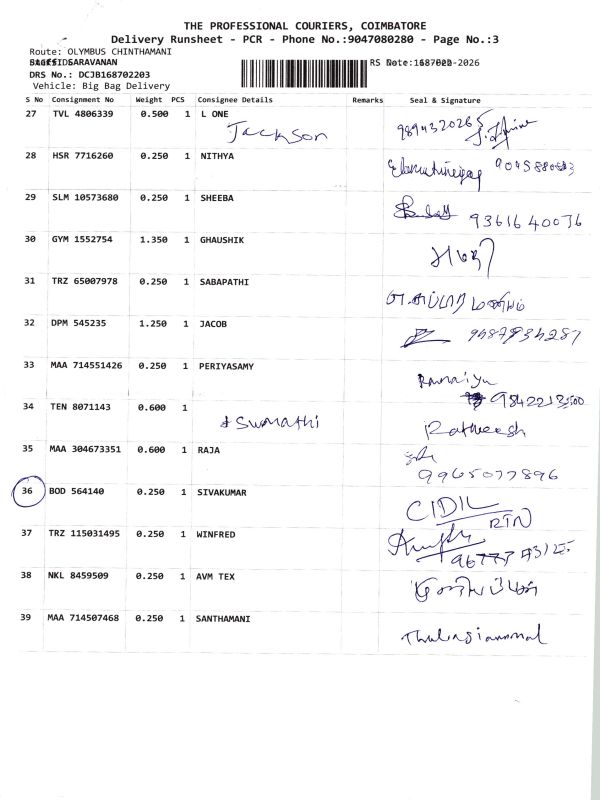 THE PROFESSIONAL COURIERS, COIMBATORE
Delivery Runsheet - PCR - Phone No.:9047080280 - Page No.:3
Route: OLYMBUS CHINTHAMANI
SARAVANAN
DRS No.: DCJB168702203
Vehicle: Big Bag Delivery
S No Consignment No Weight PCS Consignee Details Remarks Seal & Signature
27 TVL 4806339 0.500 1 L ONE
Jackson
28 HSR 7716260 0.250 1 NITHYA
29 SLM 10573680 0.250 1 SHEEBA
9361640036
30 GYM 1552754 1.350 1 GHAUSHIK
31 TRZ 65007978 0.250 1 SABAPATHI
32 DPM 545235 1.250 1 JACOB
33 MAA 714551426 0.250 1 PERIYASAMY
Ramaiya
34 TEN 8071143 0.600 1
Sumathi
Ratheesh
35 MAA 304673351 0.600 1 RAJA
9965077896
36 BOD 564140 0.250 1 SIVAKUMAR
CIDIL
RTN
37 TRZ 115031495 0.250 1 WINFRED
38 NKL 8459509 0.250 1 AVM TEX
39 MAA 714507468 0.250 1 SANTHAMANI
Thulasiammal